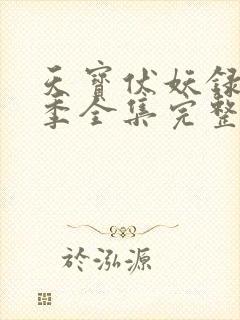 天寶伏妖録
季全集完整
於泓源